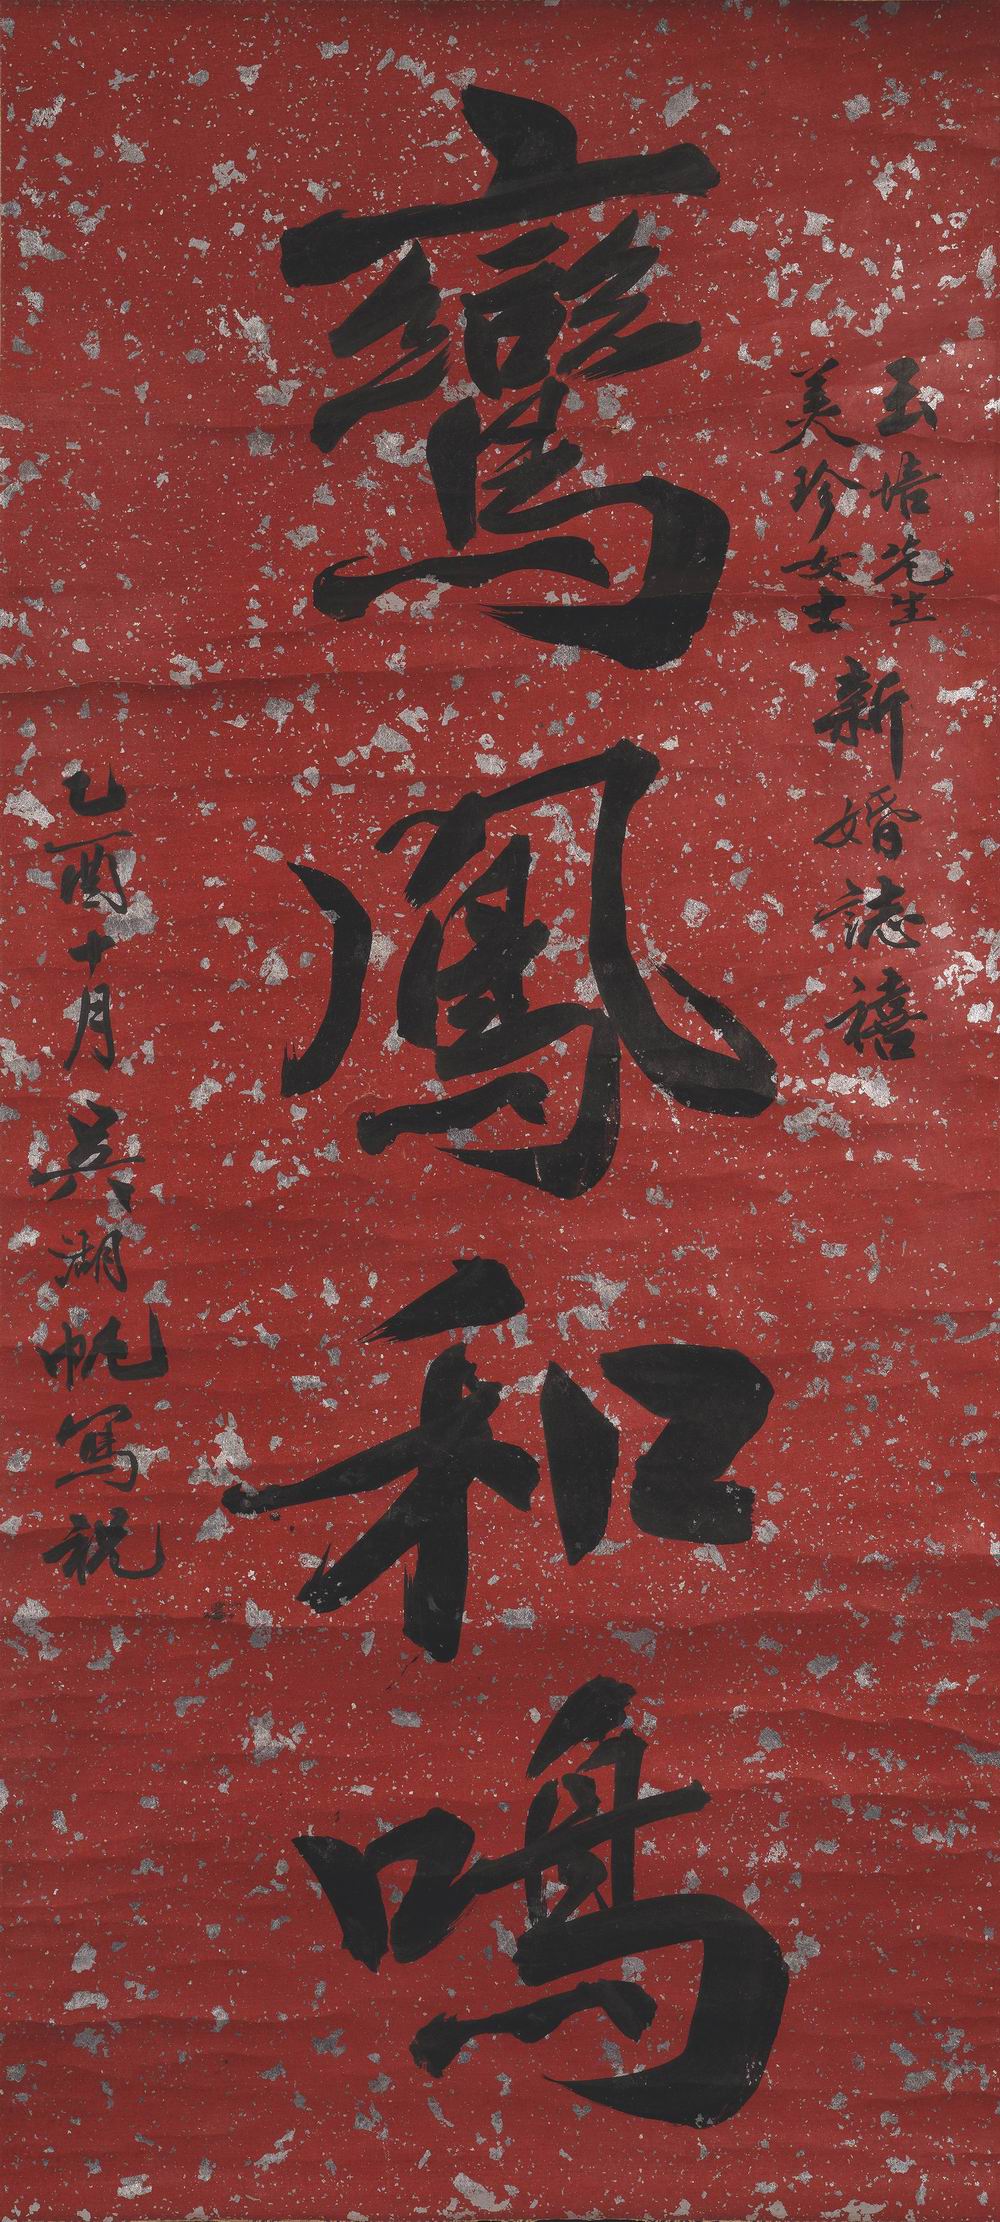 玉培先生
美珍女士
新婚誌禧
鸞鳳和鳴
乙酉十月吳湖帆寫祝